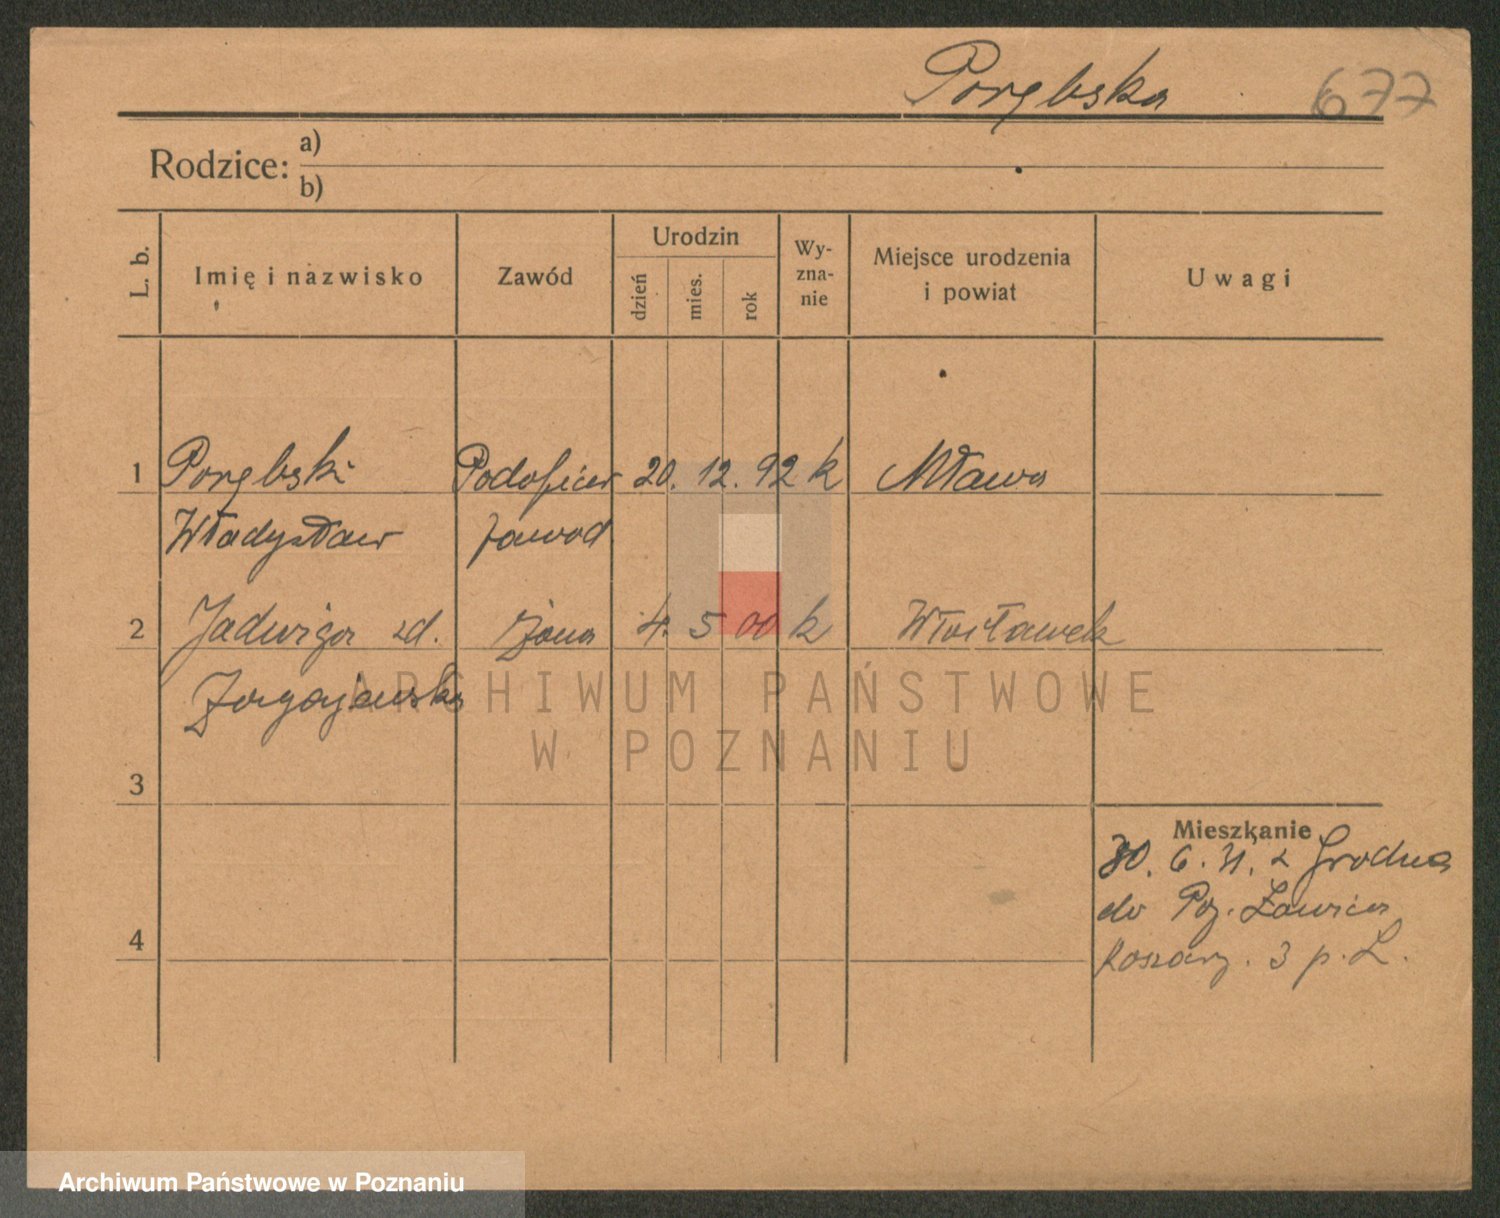 Porębska 677
Rodzice: a)
b)
L. b. Imię i nazwisko Zawód Urodzin dzień mies. rok Wy-zna-nie Miejsce urodzenia i powiat Uwagi
1 Porębski Podoficer 20. 12. 92 k Mława
Władysław zawod
2 Jadwiga zd. żona 4. 5 00 k Włocławek
Zagajewska
ARCHIWUM PAŃSTWOWE
W POZNANIU
3
Mieszkanie
30. 6. 31. z Grodna
do Poz. Ławica
4
Koszary. 3 p. L.
Archiwum Państwowe w Poznaniu